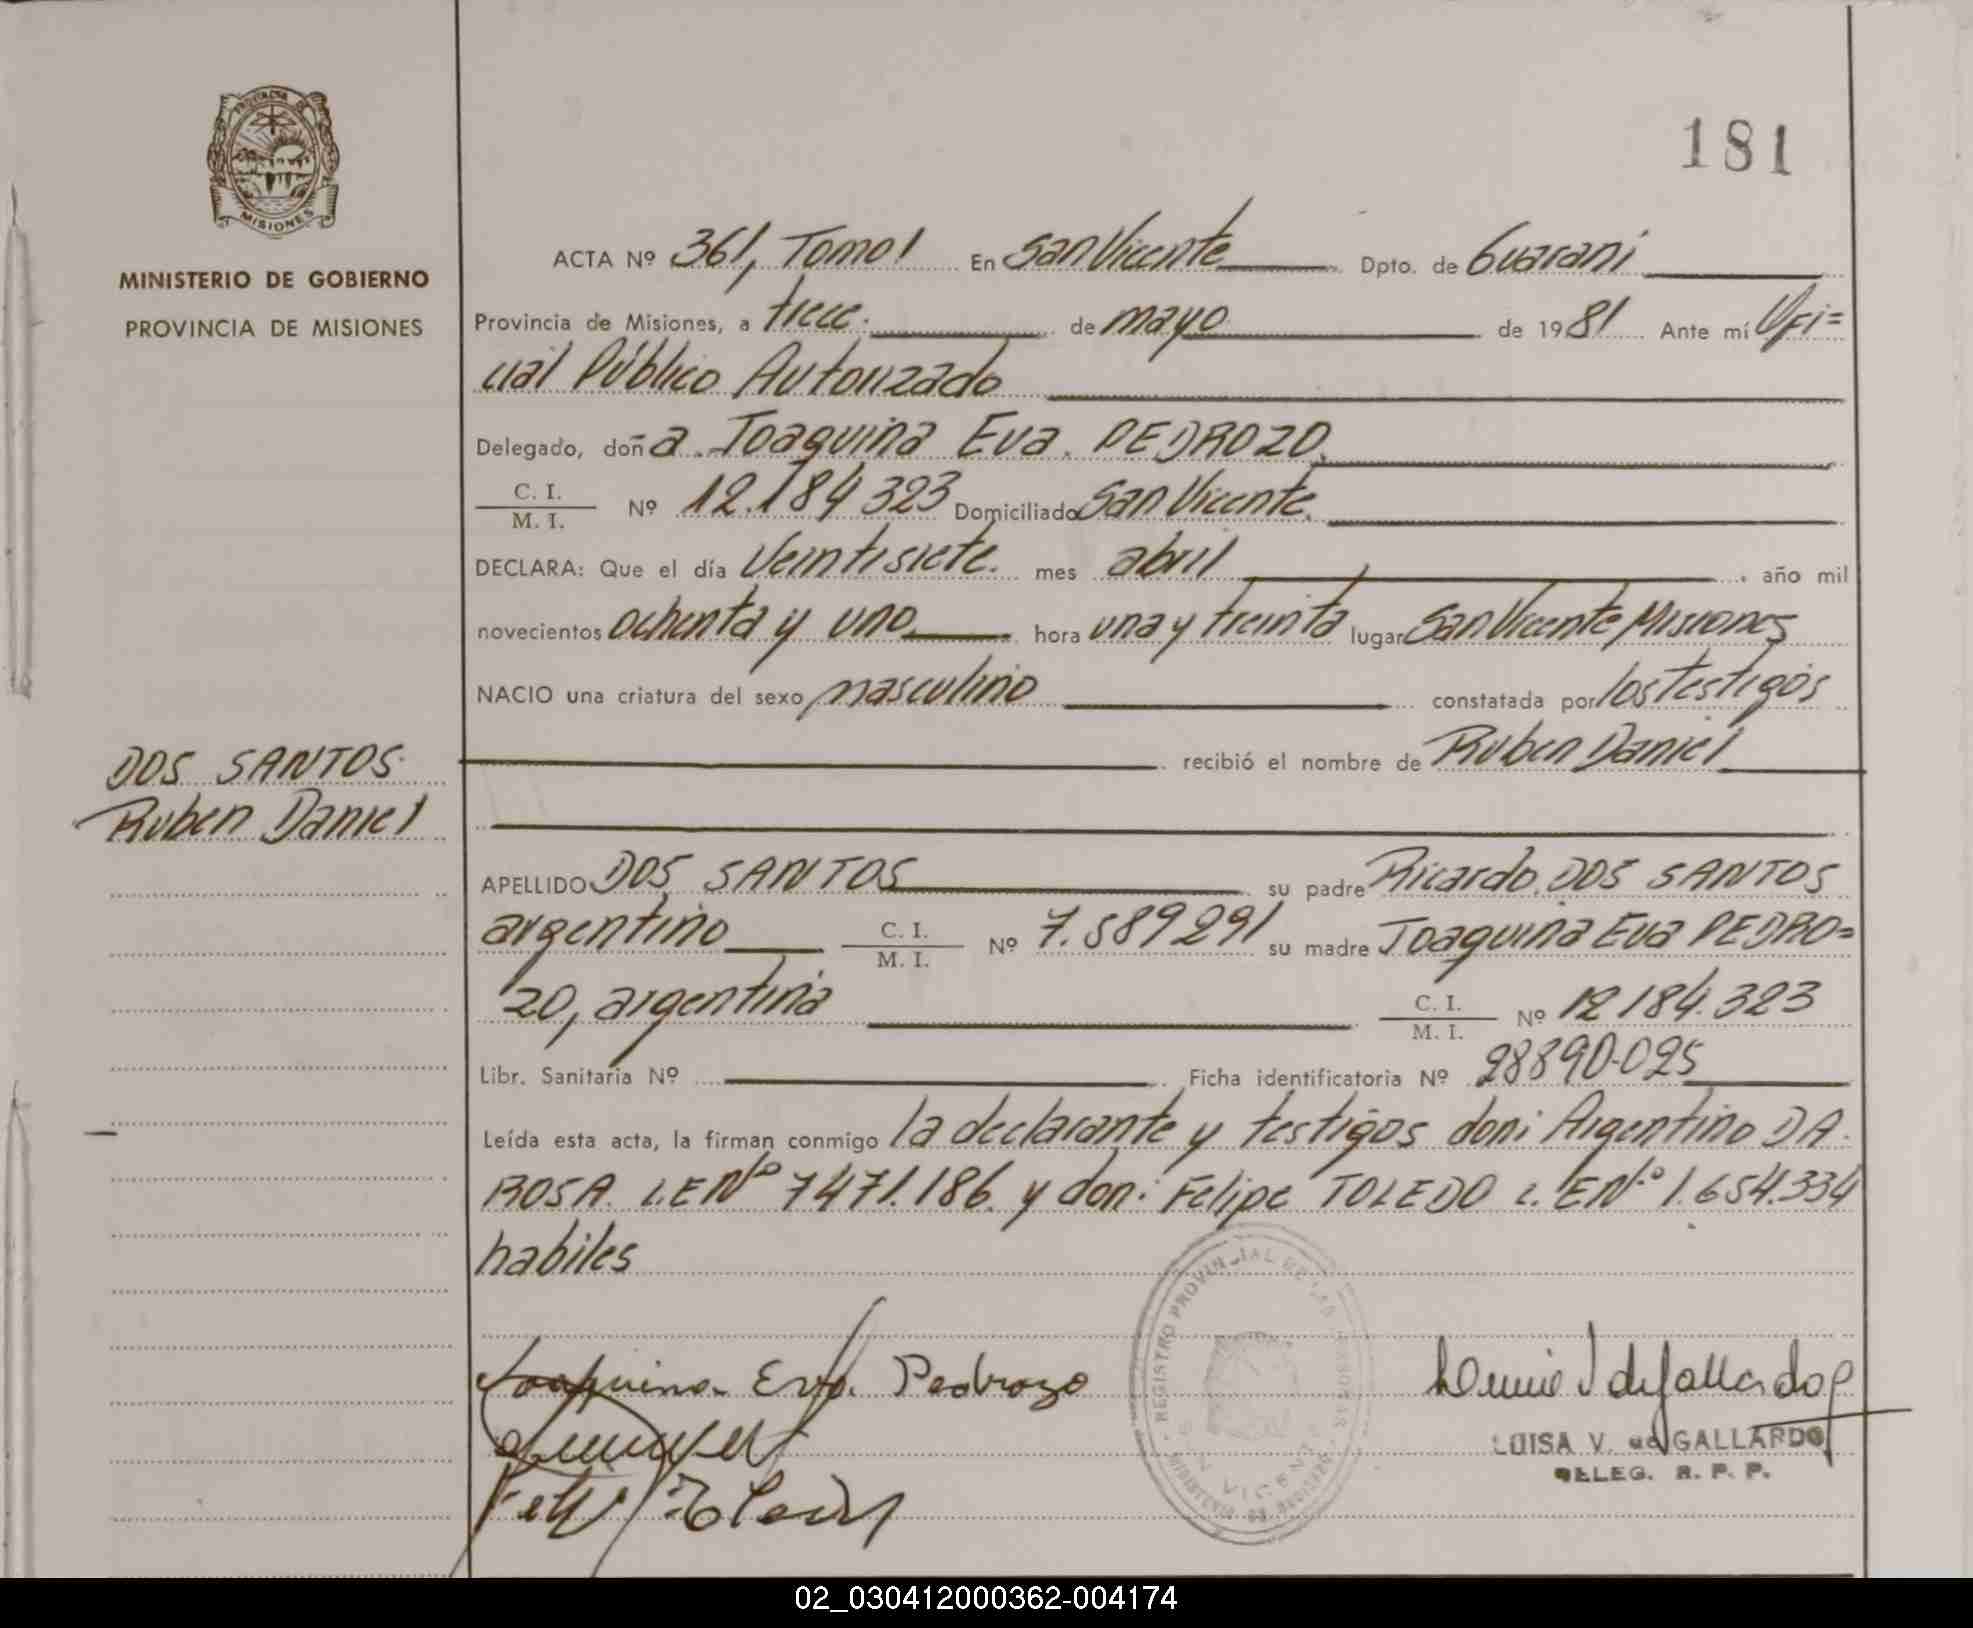 181
PROVINCIA DE
MISIONES
MINISTERIO DE GOBIERNO
PROVINCIA DE MISIONES
ACTA Nº 361, Tomo I En San Vicente Dpto. de Guarani
Provincia de Misiones, a trece. de mayo de 1981 Ante mí Ofi=
cial Público Autorizado
Delegado, doña Joaquina Eva PEDROZO.
C. I.
M. I. Nº 12.184 323 Domiciliado San Vicente.
DECLARA: Que el día Veintisiete. mes abril año mil
novecientos ochenta y uno hora una y treinta lugar San Vicente Misiones
NACIO una criatura del sexo masculino constatada por los testigos
recibió el nombre de Ruben Daniel
DOS SANTOS
Ruben Daniel
APELLIDO DOS SANTOS su padre Ricardo DOS SANTOS
argentino C. I. M. I. Nº 7.589291 su madre Joaquina Eva PEDRO=
ZO, argentina C. I. M. I. Nº 12 184.323
Libr. Sanitaria Nº Ficha identificatoria Nº 28890-025
Leída esta acta, la firman conmigo la declarante y testigos don: Argentino DA
ROSA L.E Nº 7471.186. y don: Felipe TOLEDO L.E Nº 1.654.334
habiles
Joaquina Eva Pedrozo
REGISTRO PROVINCIAL DE LAS PERSONAS
SAN VICENTE
LUISA V. de GALLARDO
DELEG. R. P. P.
02_030412000362-004174